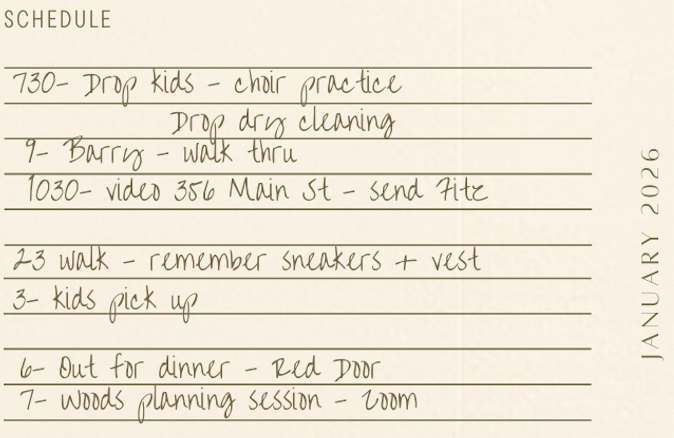 SCHEDULE
730- Drop kids - choir practice
Drop dry cleaning
9- Barry - walk thru
1030- video 356 Main St - send Fitz
23 walk - remember sneakers + vest
3- kids pick up
6- Out for dinner - Red Door
7- Woods planning session - Zoom
JANUARY 2026